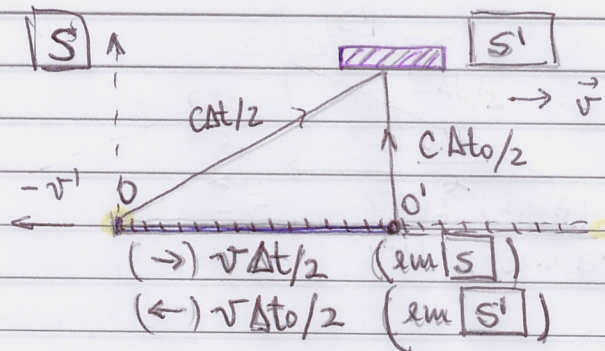 S S'
v⃗
CΔt/2
CΔt₀/2
-v' O O'
(→) vΔt/2 (em S)
(←) vΔt₀/2 (em S')